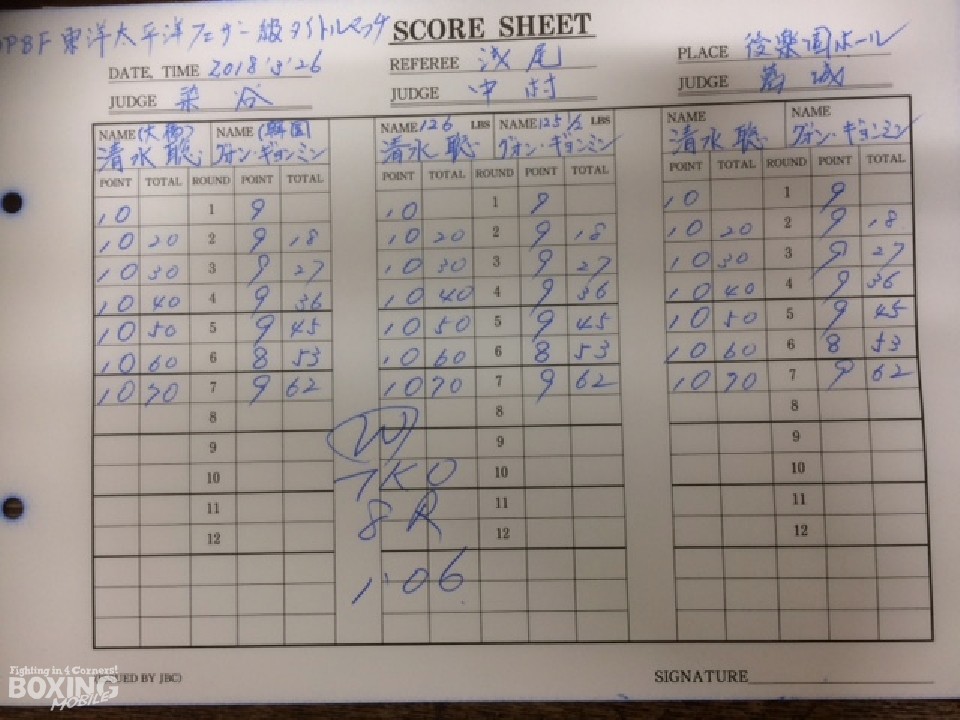 OPBF 東洋太平洋フェザー級タイトルマッチ SCORE SHEET
DATE, TIME 2018, 3, 26 REFEREE 浅尾 PLACE 後楽園ホール
JUDGE 染谷 JUDGE 中村 JUDGE 葛城
NAME (大橋) NAME (韓国) NAME 126 LBS NAME 125 1/2 LBS NAME NAME
清水聡 クォン・ギョンミン 清水聡 クォン・ギョンミン 清水聡 クォン・ギョンミン
POINT TOTAL ROUND POINT TOTAL POINT TOTAL ROUND POINT TOTAL POINT TOTAL ROUND POINT TOTAL
10 1 9 10 1 9 10 1 9
10 20 2 9 18 10 20 2 9 18 10 20 2 9 18
10 30 3 9 27 10 30 3 9 27 10 30 3 9 27
10 40 4 9 36 10 40 4 9 36 10 40 4 9 36
10 50 5 9 45 10 50 5 9 45 10 50 5 9 45
10 60 6 8 53 10 60 6 8 53 10 60 6 8 53
10 70 7 9 62 10 70 7 9 62 10 70 7 9 62
8 8 8
W
9 9 9
TKO
10 10 10
8R
11 11 11
12 12 12
1.06
Fighting in 4 Corners!
BOXING
MOBILE
UED BY JBC) SIGNATURE